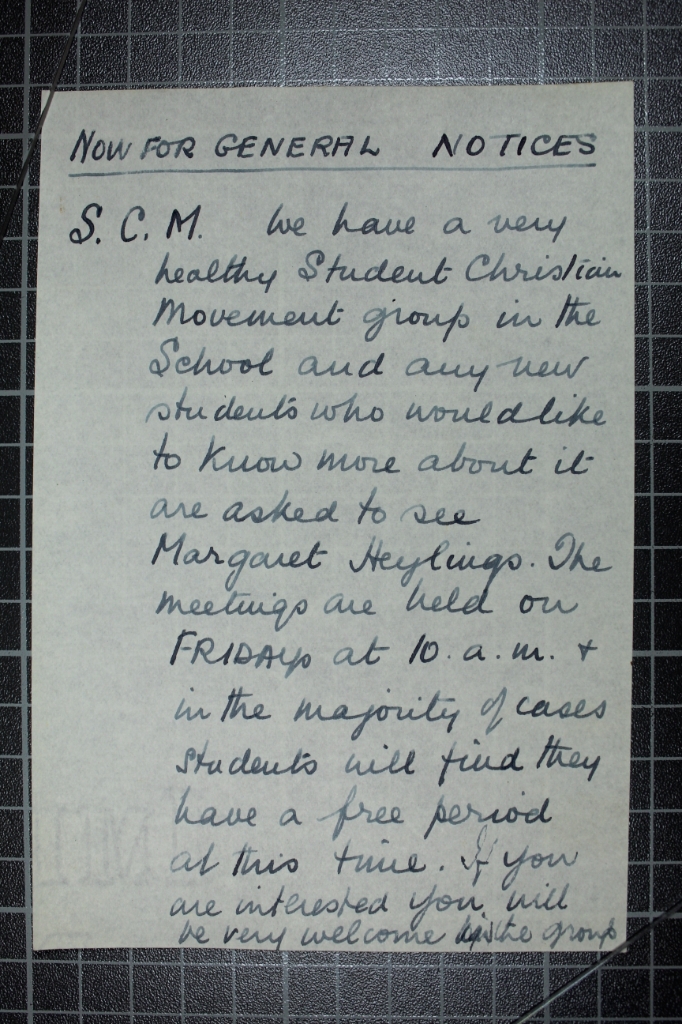 NOW FOR GENERAL NOTICES
S. C. M. We have a very
healthy Student Christian
Movement group in the
School and any new
students who would like
to know more about it
are asked to see
Margaret Heylings. The
meetings are held on
FRIDAYS at 10. a. m. +
in the majority of cases
students will find they
have a free period
at this time. If you
are interested you will
be very welcome the group